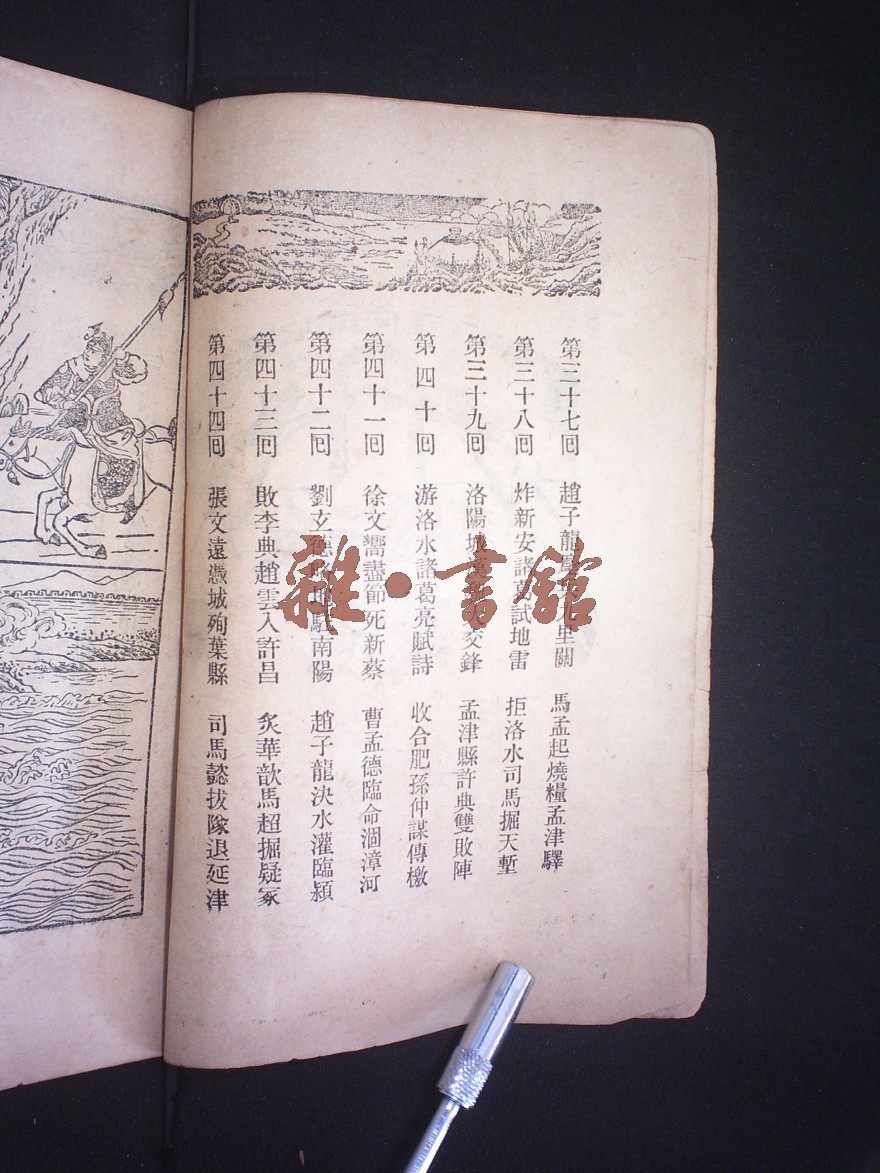 第三十七回 趙子龍里關 馬孟起燒糧孟津驛
第三十八回 炸新安諸葛試地雷 拒洛水司馬掘天塹
第三十九回 洛陽城交鋒 孟津縣許典雙敗陣
第四十回 游洛水諸葛亮賦詩 收合肥孫仲謀傳檄
第四十一回 徐文嚮盡節死新蔡 曹孟德臨命涸漳河
第四十二回 劉玄德略地駐南陽 趙子龍決水灌臨潁
第四十三回 敗李典趙雲入許昌 炙華歆馬超掘疑冢
第四十四回 張文遠憑城殉葉縣 司馬懿拔隊退延津
雜·書館